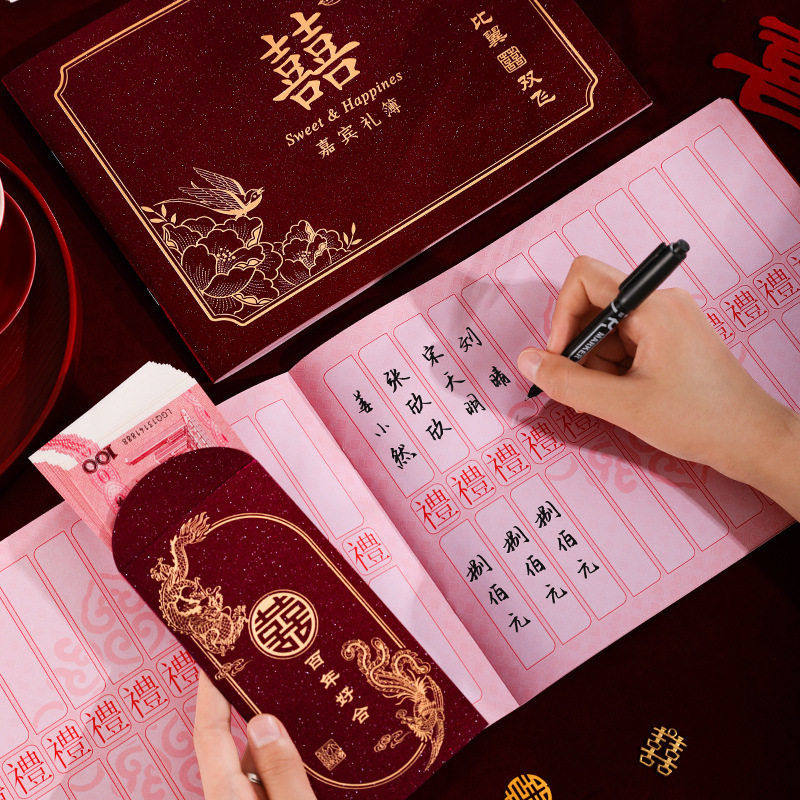 囍
Sweet & Happines
嘉宾礼簿
比翼
双飞
姜小然
张欣欣
宋天明
刘晴
禮禮禮禮
禮禮禮
捌佰元
捌佰元
捌佰元
MARKER
禮
100
LOO13141888
囍
百年好合
禮禮禮禮禮
囍